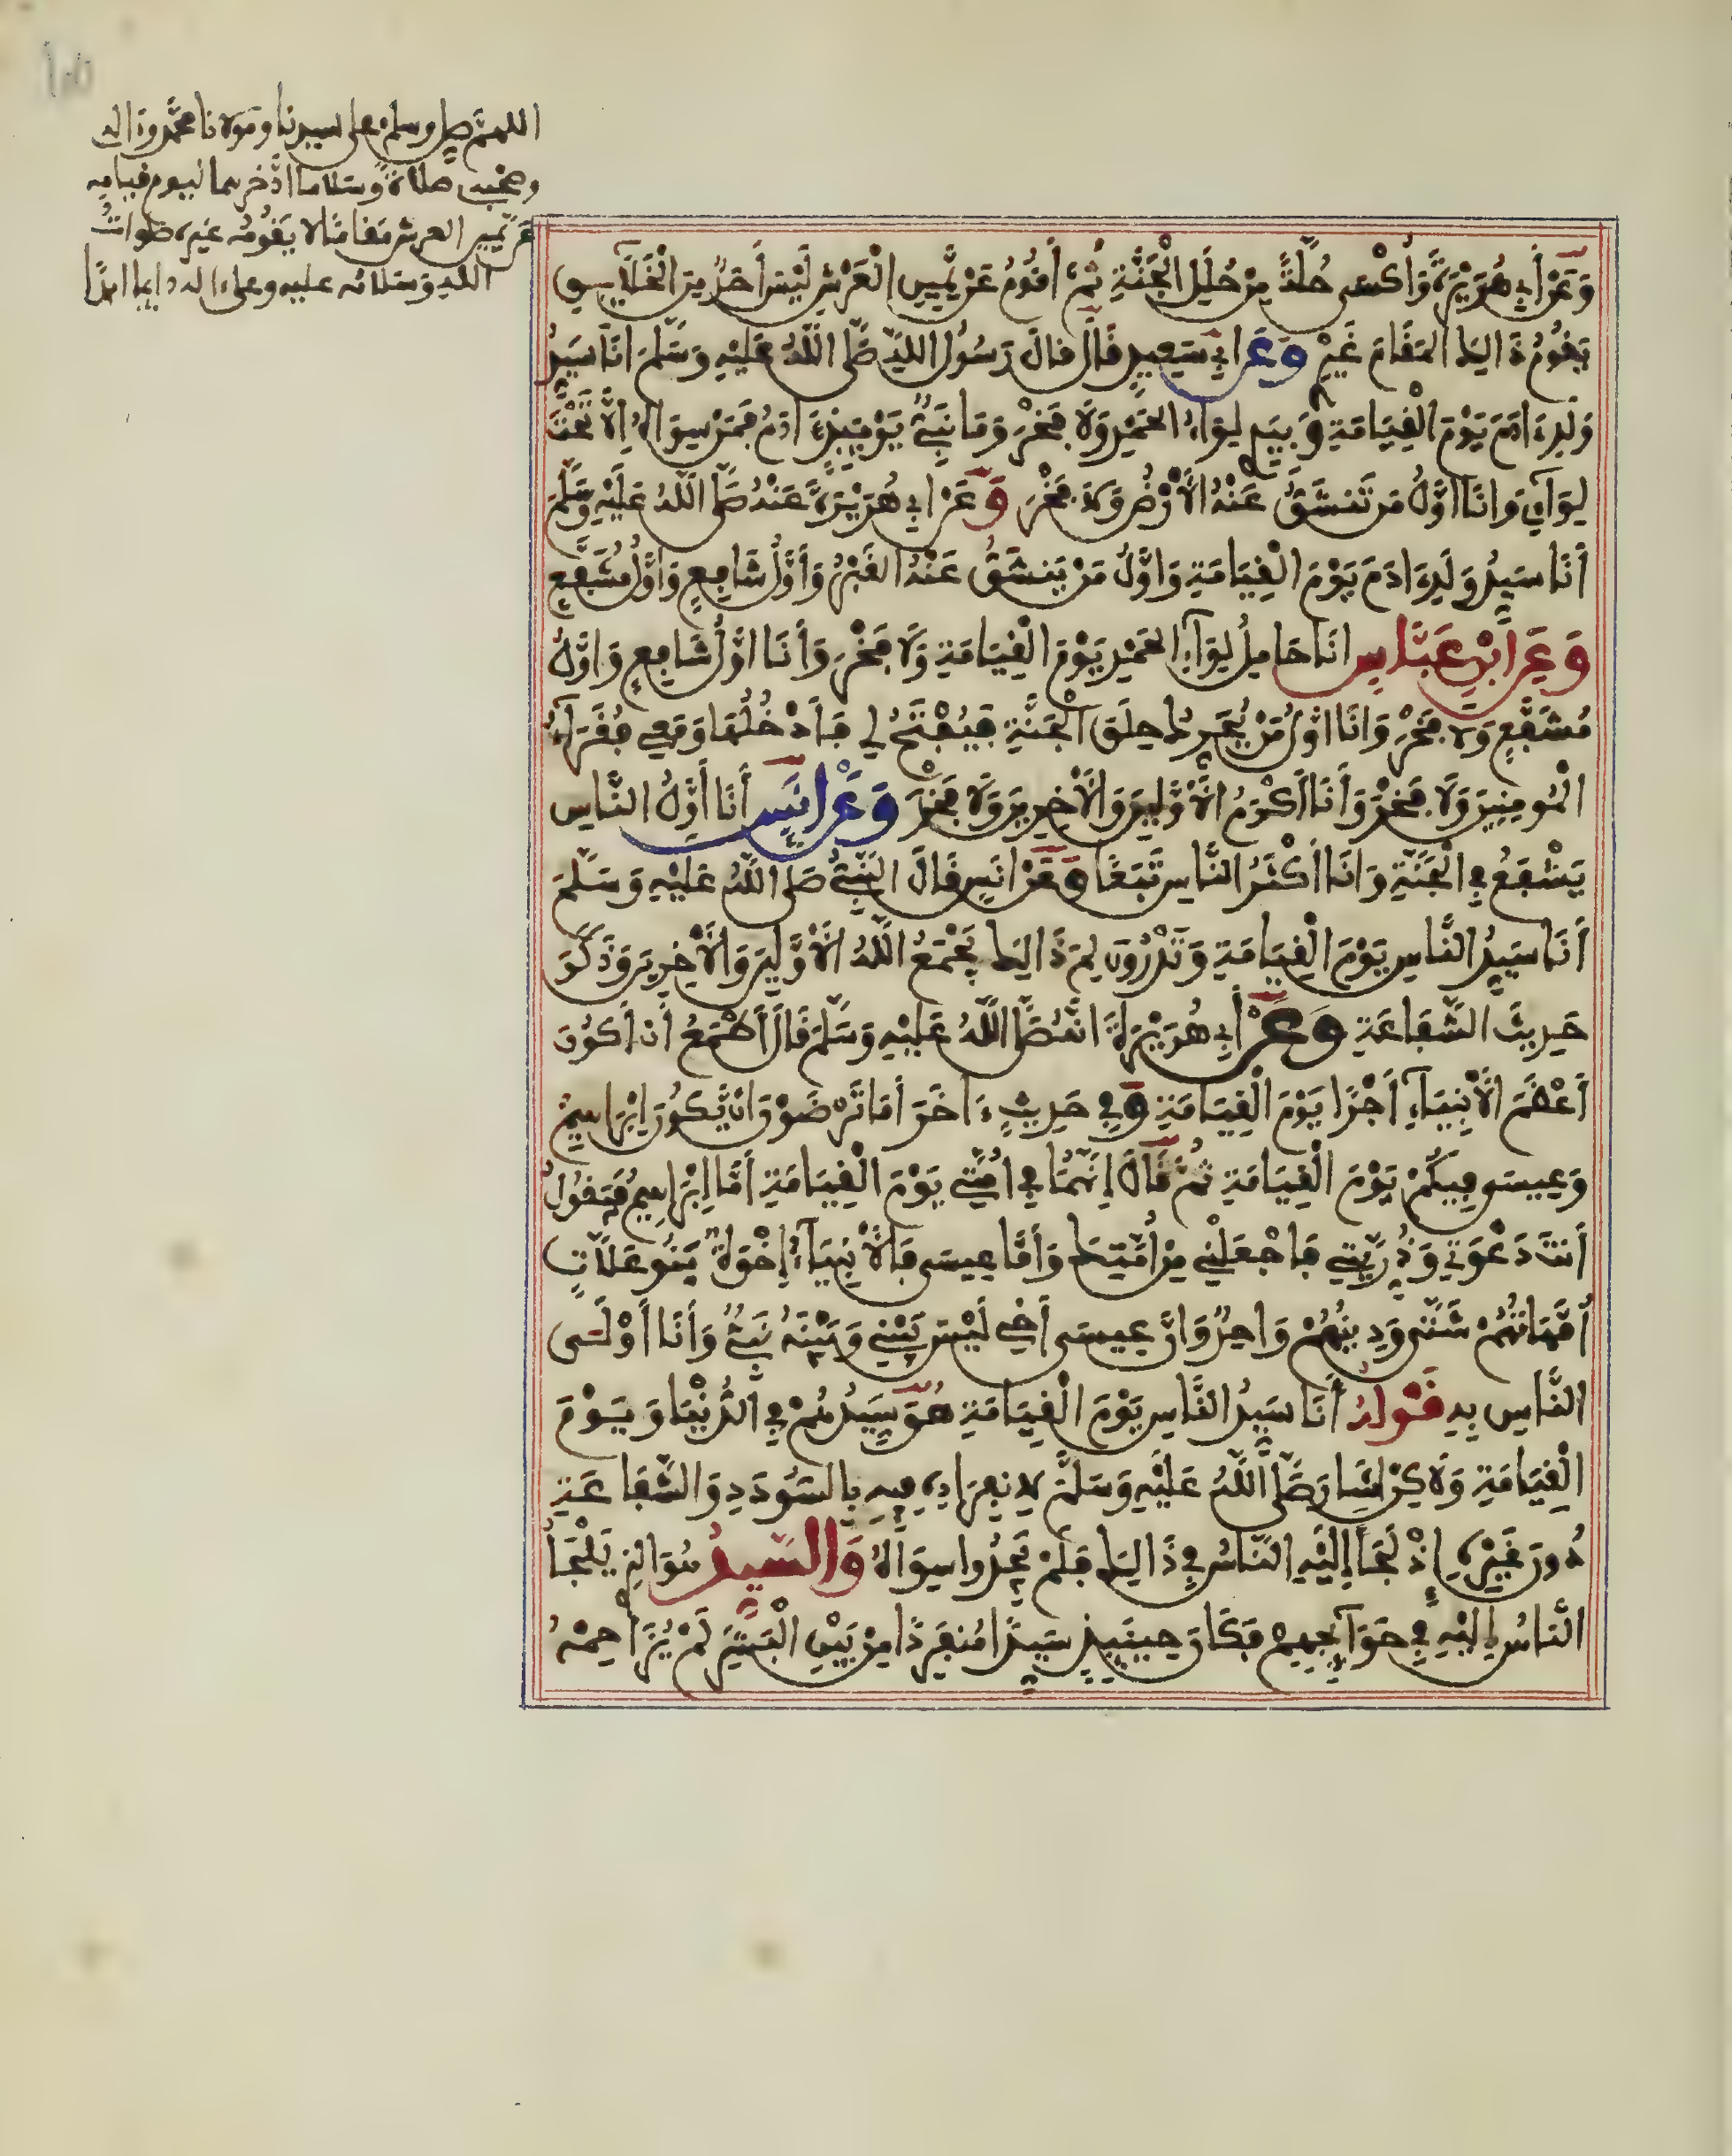 اللهم صل وسلم على سيدنا ومولانا محمد وءاله
وصحبه صلاة وسلاما ادخرهما ليوم قيامه
عن يمين العرش مقاما لا يقومه غيره صلوات
الله وسلامه عليه وعلى ءاله دايما ابدا
وَعَنْ أَبِي هُرَيْرَةَ وَأُكْسَى حُلَّةً مِنْ حُلَلِ الْجَنَّةِ ثُمَّ أَقُومُ عَنْ يَّمِينِ الْعَرْشِ لَيْسَ أَحَدٌ مِنَ الْخَلَآئِقِ
يَقُومُ ذَالِكَ الْمَقَامَ غَيْرِي وَعَنَ ابِي سَعِيدٍ قَالَ قَالَ رَسُولُ اللَّهِ صَلَّى اللَّهُ عَلَيْهِ وَسَلَّمَ انَا سَيِّدُ
وَلَدِ ءَادَمَ يَوْمَ الْقِيَامَةِ وَبِيَدِي لِوَاءُ الْحَمْدِ وَلَا فَخْرَ وَمَا نَبِيٌّ يَوْمَئِذٍ ءَادَمُ فَمَنْ سِوَاهُ إِلَّا تَحْتَ
لِوَآئِي وَانَا أَوَّلُ مَن تَنشَقُّ عَنْهُ الْأَرْضُ وَلَا فَخْرَ وَعَنَ ابِي هُرَيْرَةَ عَنْهُ صَلَّى اللَّهُ عَلَيْهِ وَسَلَّمَ
أَنَا سَيِّدُ وَلَدِ ءَادَمَ يَوْمَ الْقِيَامَةِ وَاوَّلُ مَنْ يَنشَقُّ عَنْهُ الْقَبْرُ وَأَوَّلُ شَافِعٍ وَاوَّلُ مُشَفَّعٍ
وَعَنِ ابْنِ عَبَّاسٍ انَا حَامِلُ لِوَآءِ الْحَمْدِ يَوْمَ الْقِيَامَةِ وَلَا فَخْرَ وَأَنَا أَوَّلُ شَافِعٍ وَاوَّلُ
مُشَفَّعٍ وَلَا فَخْرَ وَانَا أَوَّلُ مَنْ يُحَرِّكُ حِلَقَ الْجَنَّةِ فَيُفْتَحُ لِي فَأَدْخُلُهَا وَمَعِي فُقَرَآءُ
الْمُومِنِينَ وَلَا فَخْرَ وَأَنَا أَكْرَمُ الْأَوَّلِينَ وَالْآخِرِينَ وَلَا فَخْرَ وَعَنَ انَسٍ أَنَا أَوَّلُ النَّاسِ
يَشْفَعُ فِي الْجَنَّةِ وَانَا أَكْثَرُ النَّاسِ تَبَعًا وَعَنْ انَسٍ قَالَ النَّبِيُّ صَلَّى اللَّهُ عَلَيْهِ وَسَلَّمَ
أَنَا سَيِّدُ النَّاسِ يَوْمَ الْقِيَامَةِ وَتَدْرُونَ لِمَ ذَالِكَ يَجْمَعُ اللَّهُ الْأَوَّلِينَ وَالْآخِرِينَ وَذَكَرَ
حَدِيثَ الشَّفَاعَةِ وَعَنْ أَبِي هُرَيْرَةَ انَّهُ صَلَّى اللَّهُ عَلَيْهِ وَسَلَّمَ قَالَ أَطْمَعُ أَنَ أَكُونَ
أَعْظَمَ الْأَنْبِيَآءِ أَجْرًا يَوْمَ الْقِيَامَةِ وَفِي حَدِيثٍ ءَاخَرَ أَمَا تَرْضَوْنَ انْ يَّكُونَ إِبْرَاهِيمُ
وَعِيسَى فِيكُمْ يَوْمَ الْقِيَامَةِ ثُمَّ قَالَ إِنَّهُمَا فِي أُمَّتِي يَوْمَ الْقِيَامَةِ أَمَّا إِبْرَاهِيمُ فَيَقُولُ
أَنتَ دَعْوَتِي وَذُرِّيَّتِي فَاجْعَلْنِي مِنْ أُمَّتِكَ وَأَمَّا عِيسَى فَالْأَنْبِيَآءُ إِخْوَةٌ بَنُو عَلَّاتٍ
أُمَّهَاتُهُمْ شَتَّى وَدِينُهُمْ وَاحِدٌ وَانَّ عِيسَى أَخِي لَيْسَ بَيْنِي وَبَيْنَهُ نَبِيٌّ وَأَنَا أَوْلَى
النَّاسِ بِهِ قَوْلُهُ أَنَا سَيِّدُ النَّاسِ يَوْمَ الْقِيَامَةِ هُوَ سَيِّدُهُمْ فِي الدُّنْيَا وَيَوْمَ
الْقِيَامَةِ وَلَكِنْ اشَارَ صَلَّى اللَّهُ عَلَيْهِ وَسَلَّمَ لِانفِرَادِهِ فِيهِ بِالسُّودَدِ وَالشَّفَاعَةِ
دُونَ غَيْرِهِ إِذْ لَجَأَ إِلَيْهِ النَّاسُ فِي ذَالِكَ فَلَمْ يَجِدُوا سِوَاهُ وَالسَّيِّدُ هُوَ الذِي يَلْجَأُ
النَّاسُ إِلَيْهِ فِي حَوَآئِجِهِمْ فَكَانَ حِينَئِذٍ سَيِّدًا مُنفَرِدًا مِنْ بَيْنِ الْبَشَرِ لَمْ يُزَاحِمْهُ